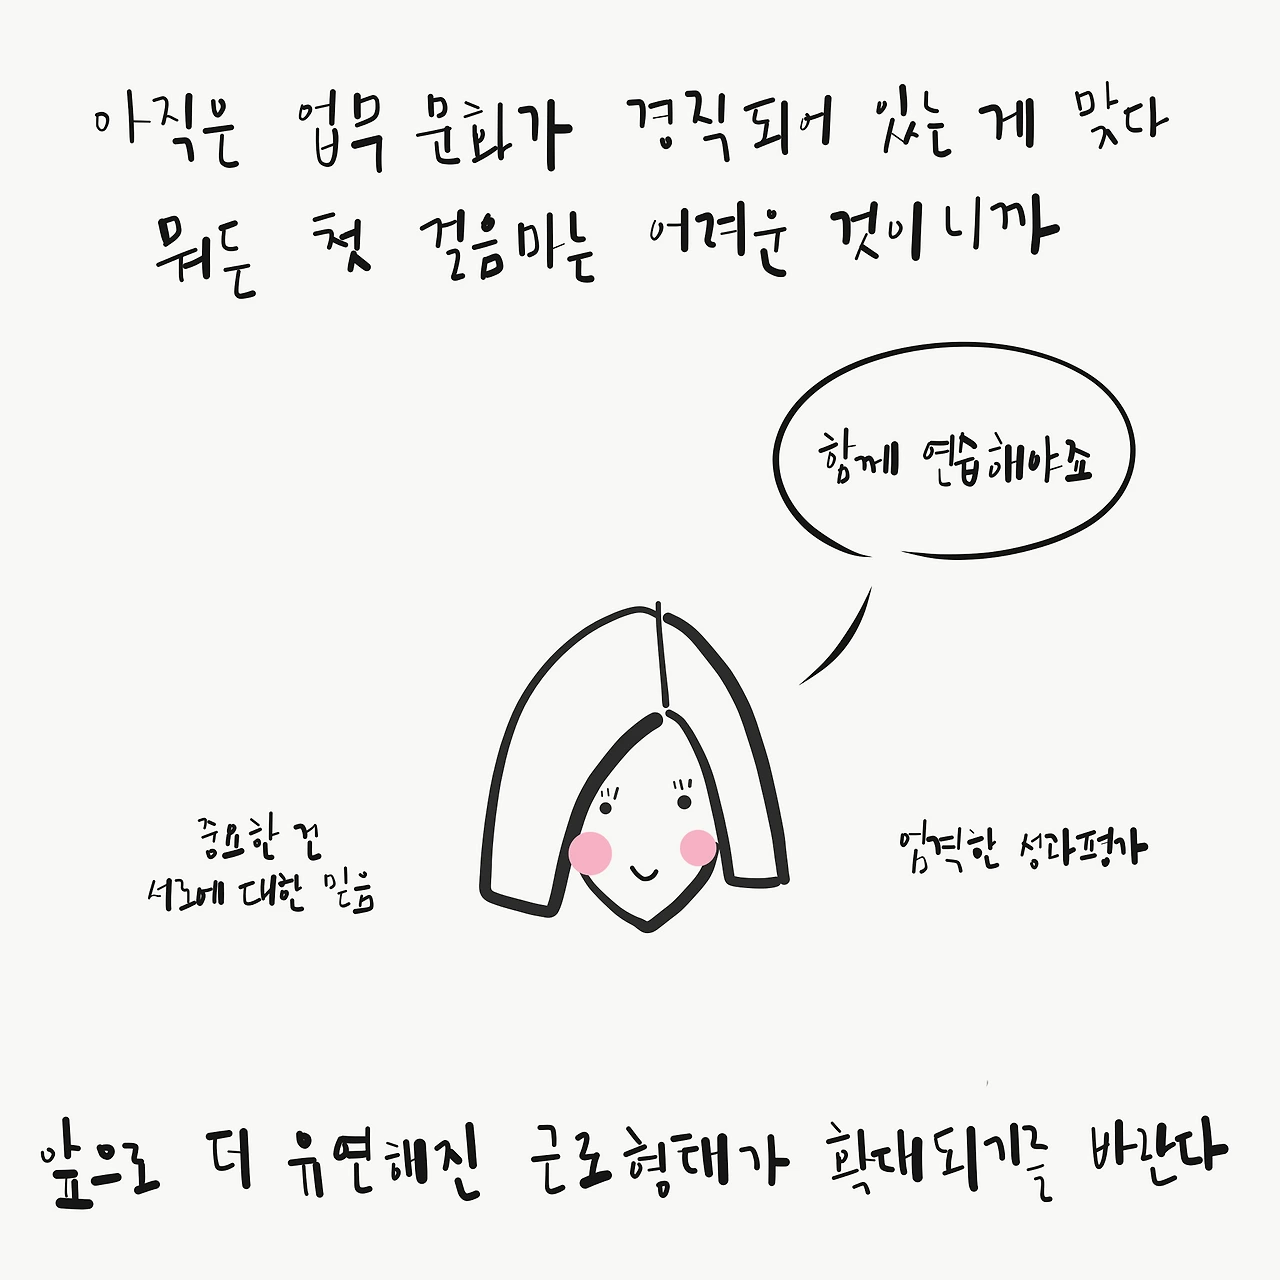 아직은 업무 문화가 경직되어 있는 게 맞다
뭐든 첫 걸음마는 어려운 것이니까
함께 연습해야죠
중요한 건
서로에 대한 믿음
엄격한 성과평가
앞으로 더 유연해진 근로형태가 확대되기를 바란다